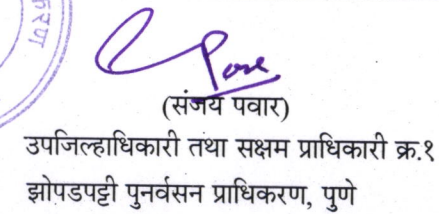 करण
(संजय पवार)
उपजिल्हाधिकारी तथा सक्षम प्राधिकारी क्र.१
झोपडपट्टी पुनर्वसन प्राधिकरण, पुणे